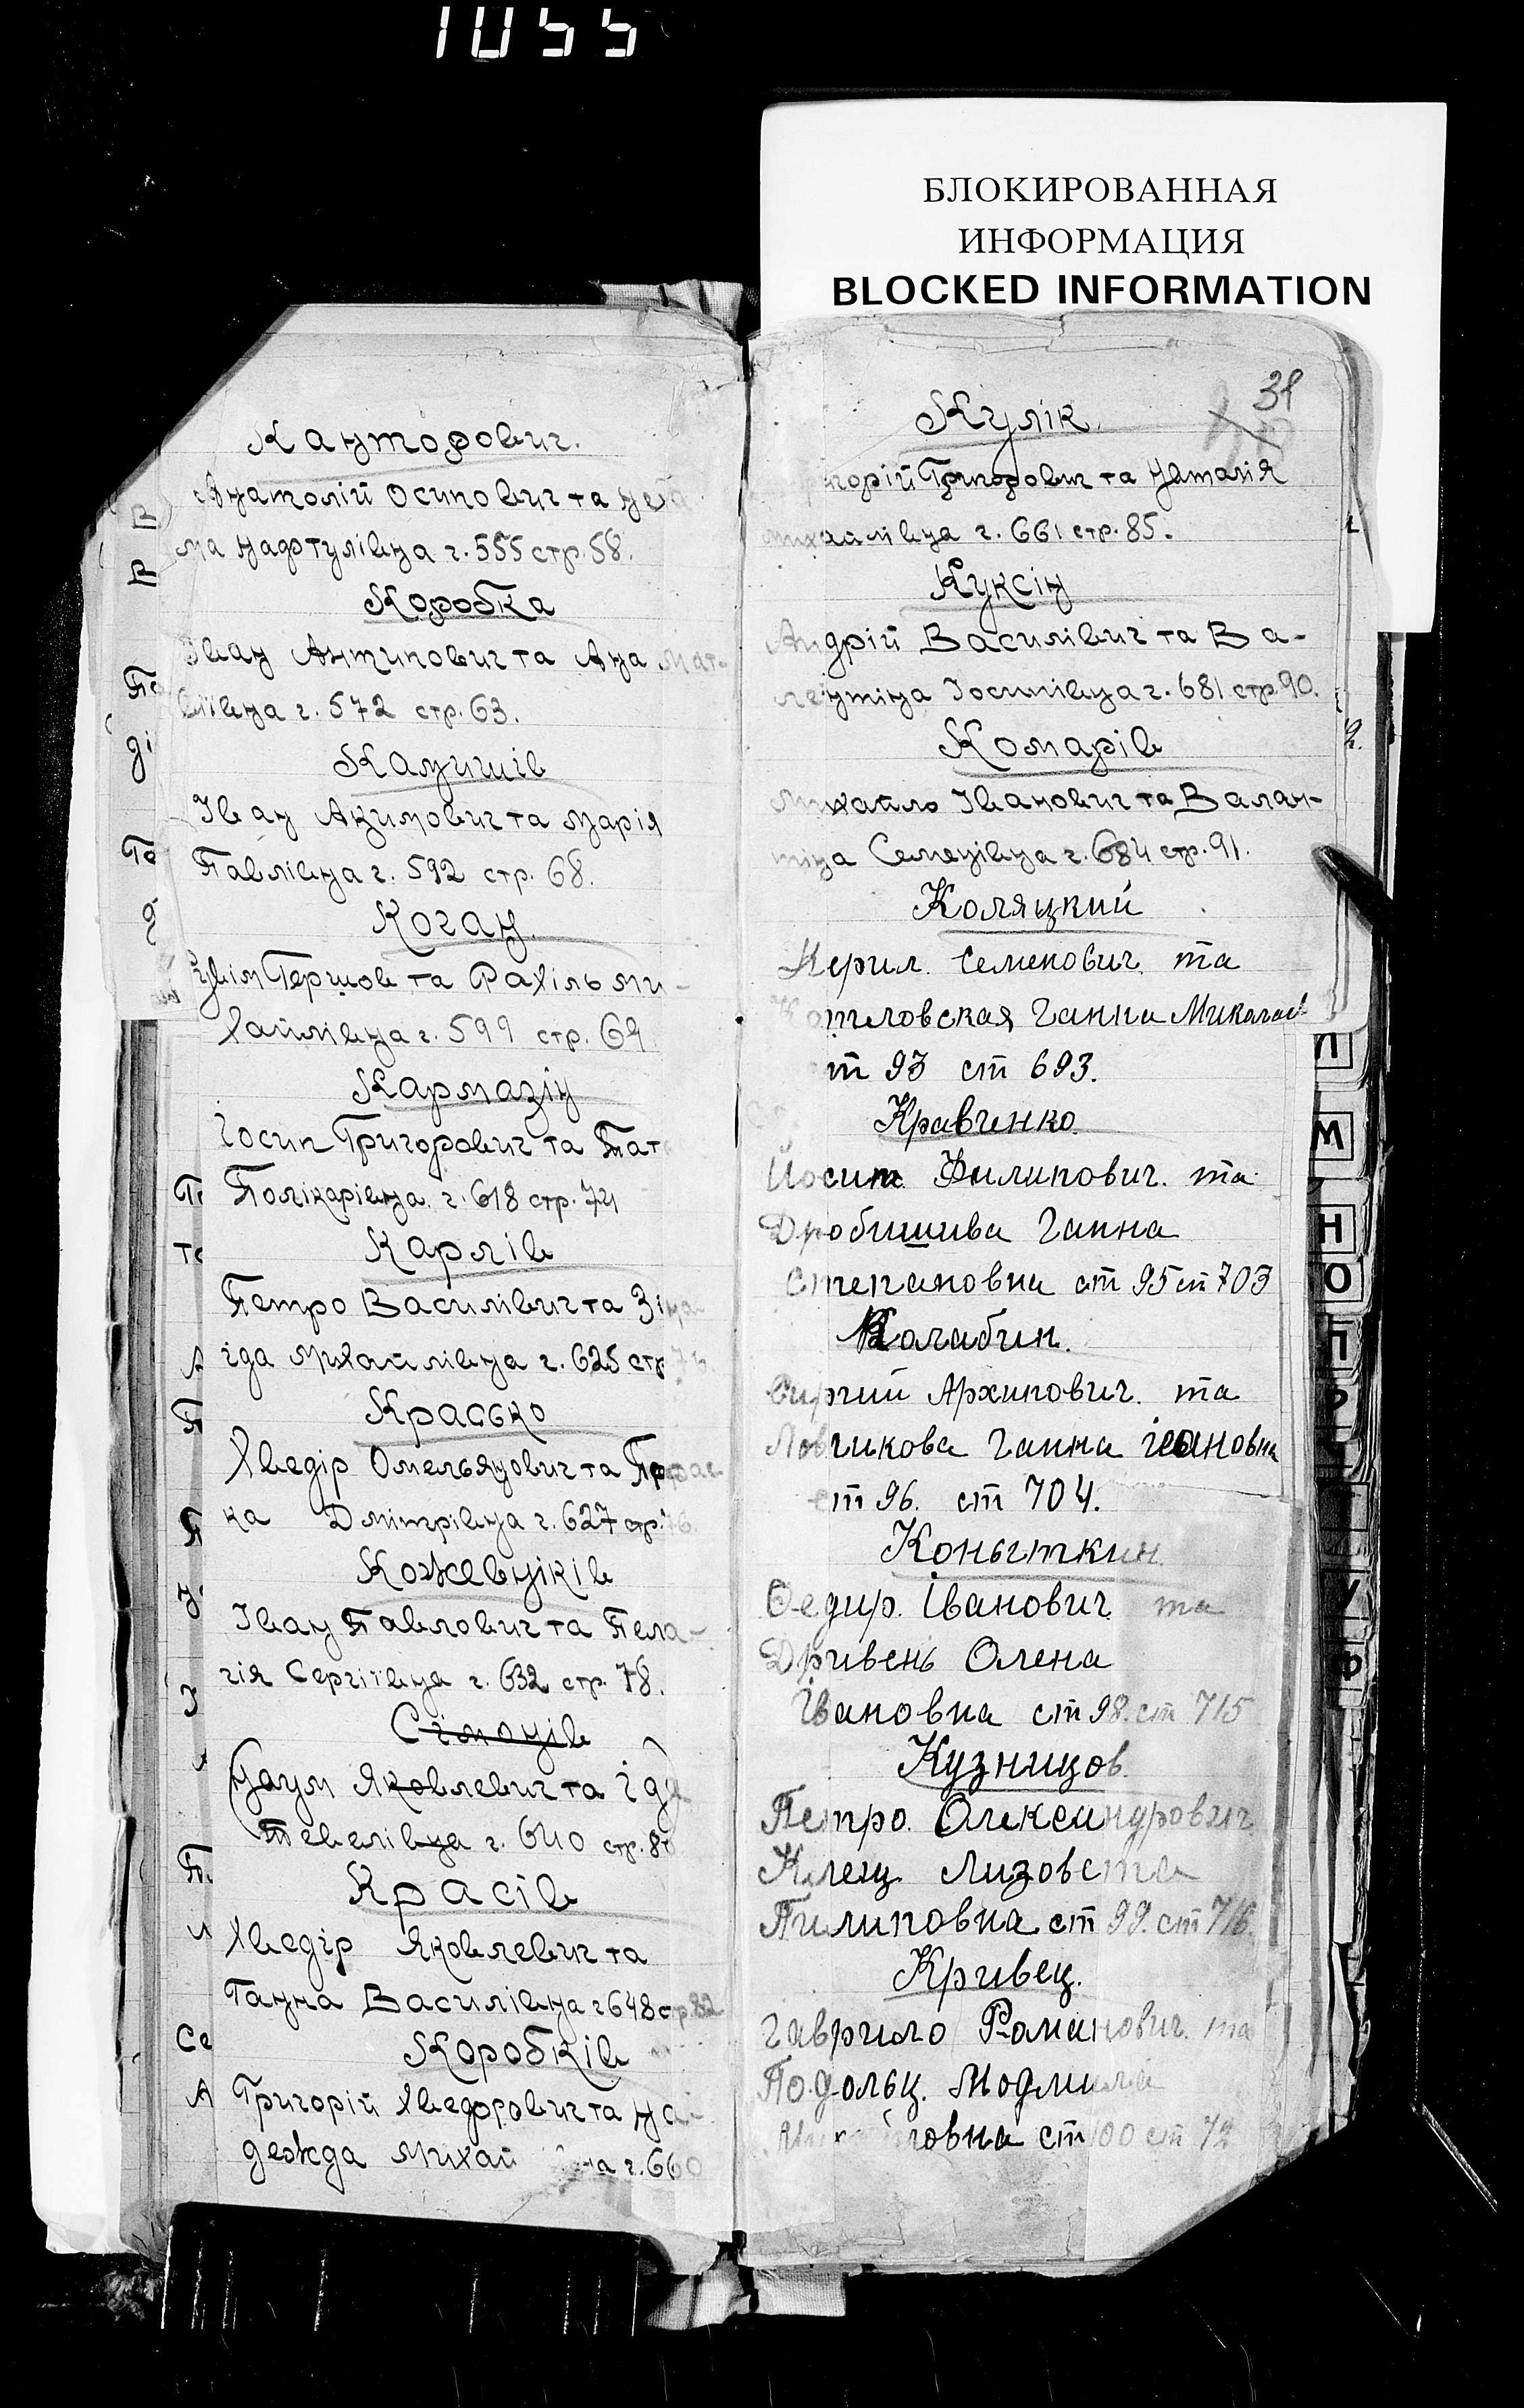 1055
БЛОКИРОВАННАЯ
ИНФОРМАЦИЯ
BLOCKED INFORMATION
Канторович.
Анатолій Осипович та
ма Нафтулівна г. 555 стр. 58.
Коробка
Іван Антипович та Ана Мат-
віївна г. 572 стр. 63.
Камишів
Іван Акимович та Марія
Павлівна г. 592 стр. 68.
Коган.
Гершов та Рахіль Ми-
хайлівна г. 599 стр. 69
Кармазін
Іосип Григорович та Тат
Полікарівна г. 618 стр. 74
Карлів
Петро Василівич та Зіна-
іда Михайлівна г. 625 стр
Красько
Хведір Омельянович та
ка Дмітрівна г. 627 стр.
Кожевніків
Іван Павлович та Пела-
гія Сергіївна г. 632 стр. 78.
Сімонів
Наум Яковлевич та Іда
Тевелівна г. 640 стр. 80
Красів
Хведір Яковлевич та
Ганна Василівна г 648 стр. 82
Коробків
Григорій Хведорович та На-
дежда Михай на г. 660
31
Кулік.
Григорій Григорович та Наталія
Михаалівна г. 661 стр. 85.
Куксін
Андрій Василівич та Ва-
лентіна Іосипівна г. 681 стр. 90.
Комарів
Михайло Іванович та Вален-
тіна Семенівна г. 684 стр. 91.
Коляцкий
Керил. Семенович. та
Ганна Миколаев
ст 93 ст 693.
Кравченко.
Йосип Филипович. та
Дробишива Ганна
Степановна ст 95 ст 703
Колабин.
Сиргий Архипович. та
Ловчикова Ганна Івановна
ст 96. ст 704.
Коныткин.
Федир. Іванович. та
Дривень Олена
Івановна ст 98. ст 715
Кузницов.
Петро. Олександрович.
Клец Лизовета
Пилиповна ст 99. ст 716.
Кривец.
Гаврило Романович. та
Подольц. Людмила
ст 100 ст 72
Л
М
Н
О
П
Р
У
Ф